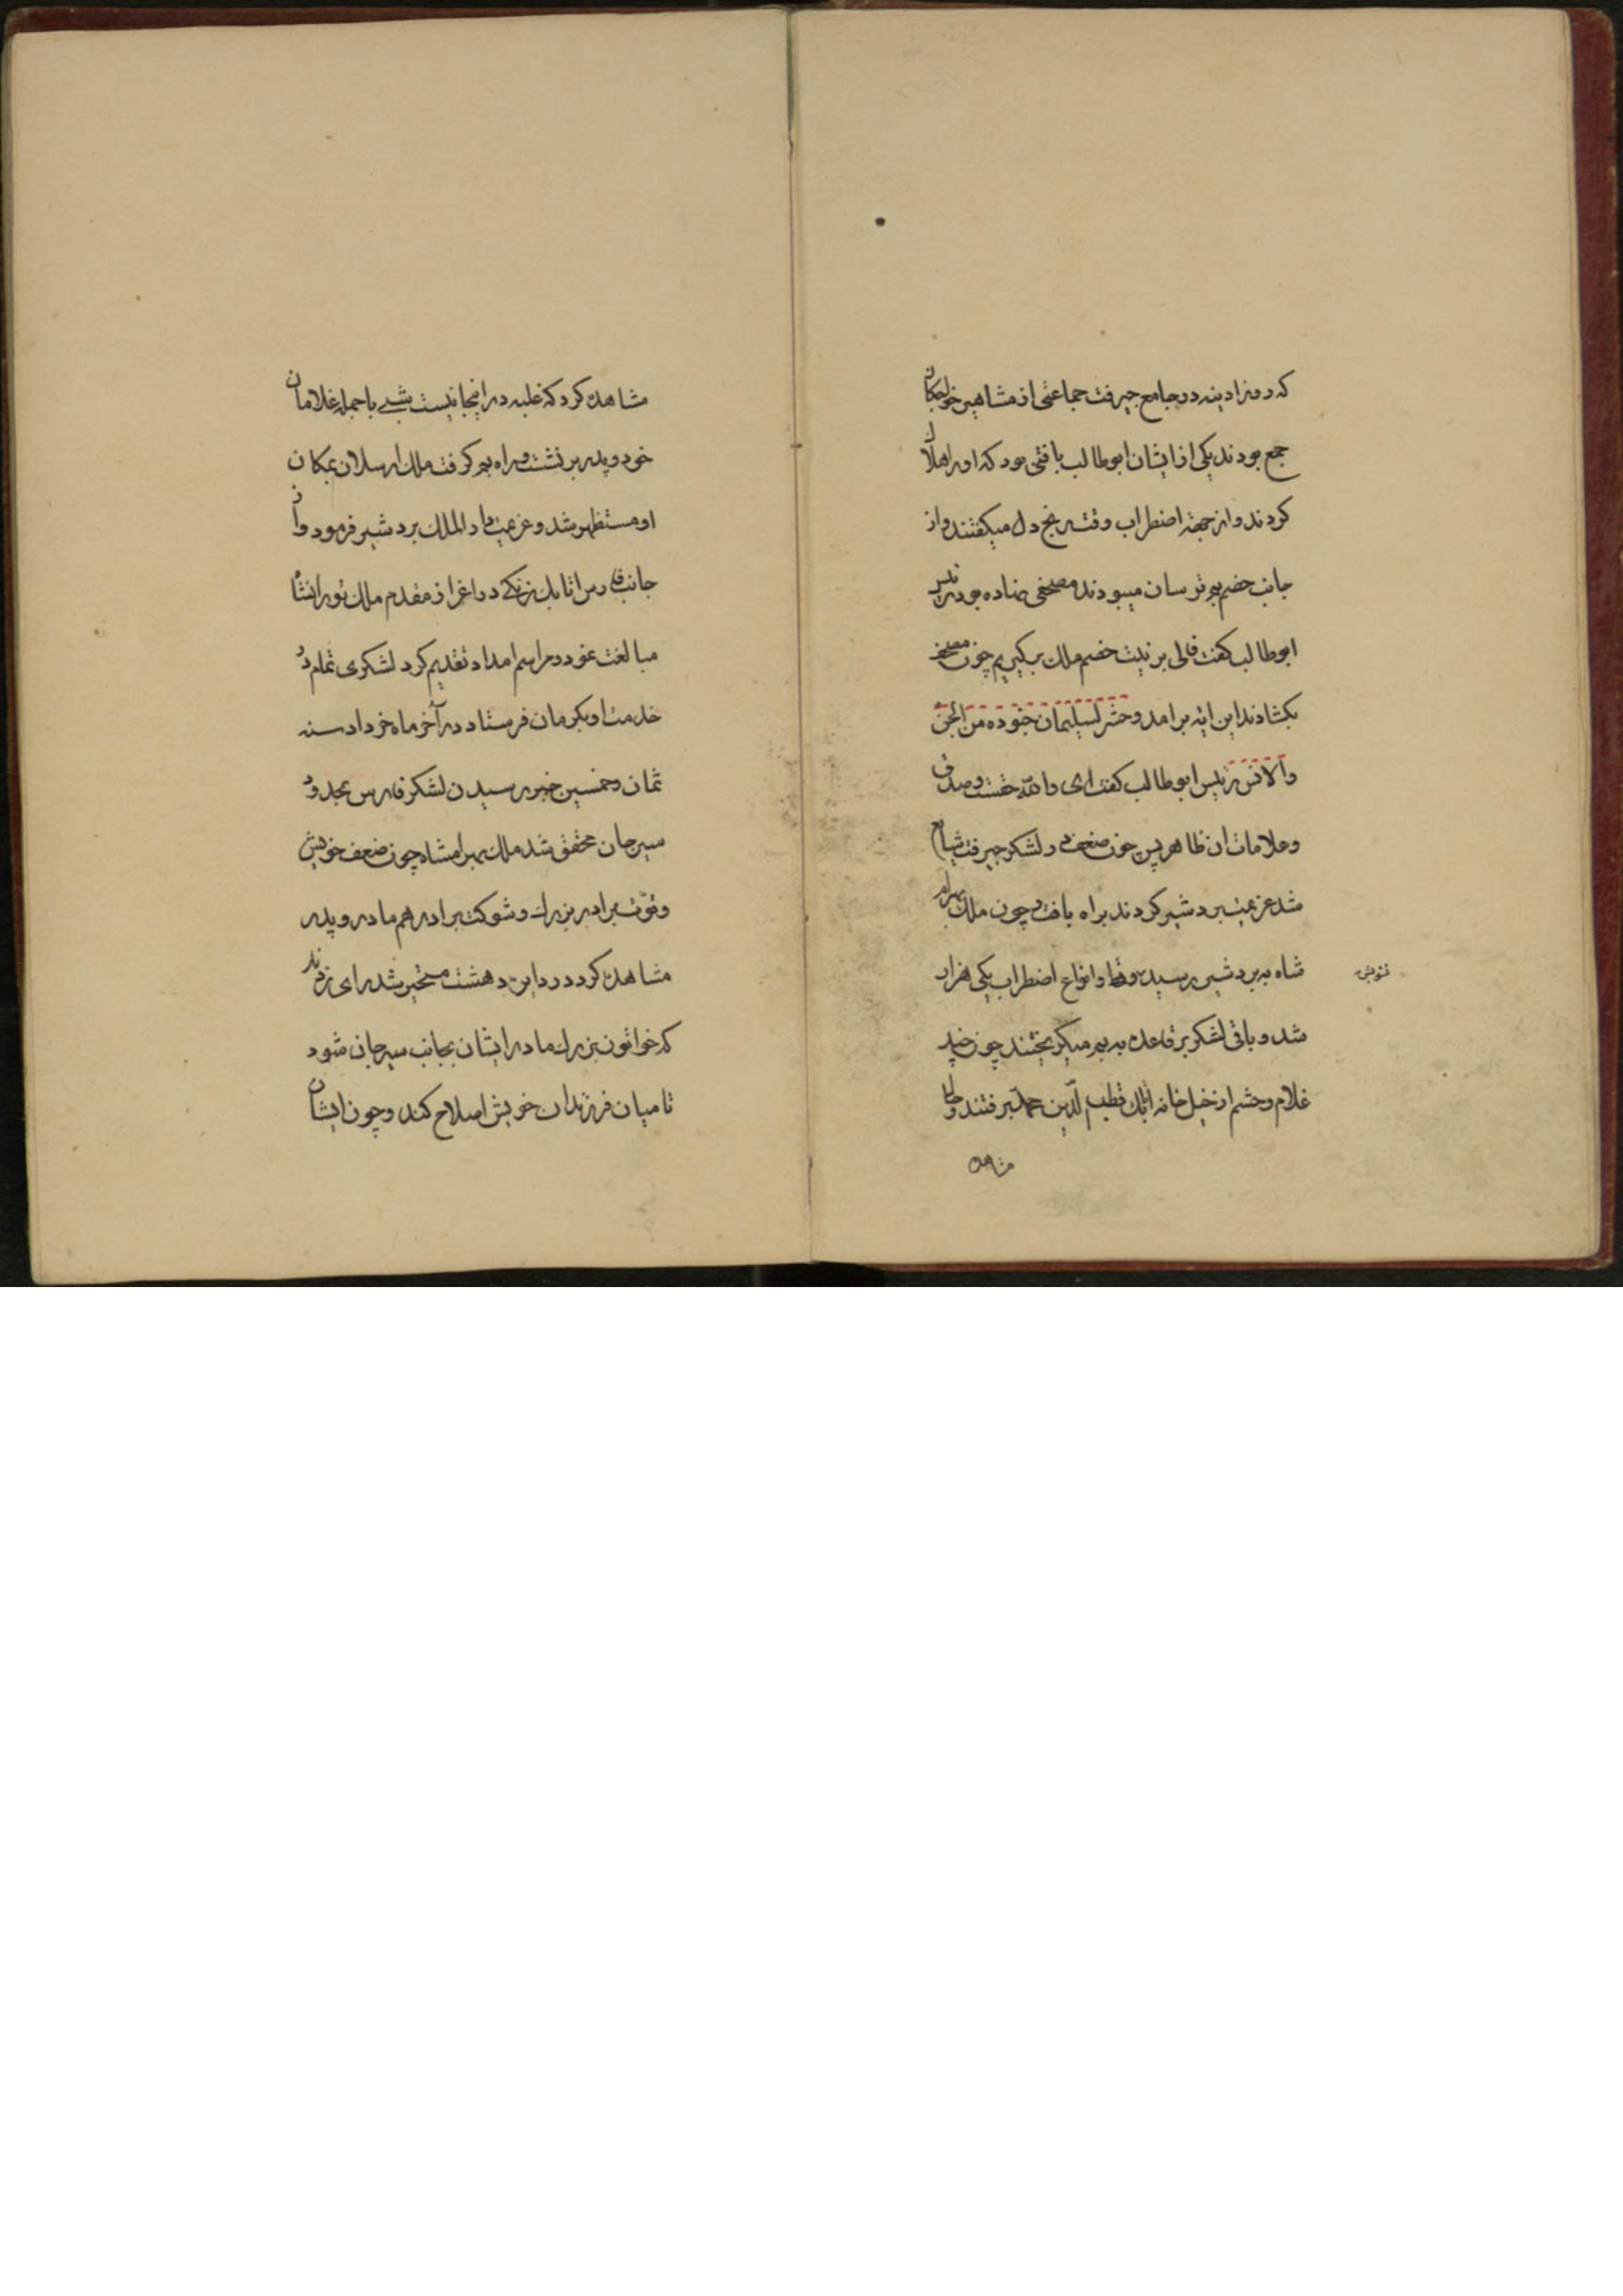 که روز ادینه در جامع جیرفت جماعتی از مشاهیر خواجگان
جمع بودند یکی از ایشان ابوطالب بافتی بود که او را هلاک
کردند و از جهة اضطراب وقت رنج دل میکفتند و از
جانب خصم هم ترسان میبودند مصحفی نهاده بود رئیس
ابوطالب کفت فالی بر نیت خصم ملک برکیریم چون مصحف
بکشادند این ایه برامد وحشر لسلیمان جنوده من الجن
والانس رئیس ابوطالب کفت ای والله حقست و صدق
و علامات ان ظاهر پس چون ضعف در لشکر جیرفت شایع
شد عزیمت بردشیر کردند براه بافت و چون ملک بهرام
شاه به بردشیر رسید وقط و انواع اضطراب یکی هزار
شد و باقی لشکر بر قاعده به بم میکریختند چون چند
غلام و حشم از خیل خانه اتابک قطب الدین محمد برفتند و حال
مشاهده
مشاهده کرد که غلبه در اینجا نیست شبی با جمله غلامان
خود و پدر بر نشست و راه بم کرفت ملک ارسلان بمکان
او مستظهر شد و عزیمت دار الملک بردشیر فرمود و از
جانب فارس اتابک زنکی در اعزاز مقدم ملک تورانشاه
مبالغت نمود و مراسم امداد تقدیم کرد لشکری تمام در
خدمت او بکرمان فرستاد در آخر ماه خرداد سنه
ثمان و خمسین خبر رسیدن لشکر فارس بحدود
سیرجان محقق شد ملک بهرامشاه چون ضعف خویش
و قوّت برادر بزرک و شوکت برادر هم مادر و پدر
مشاهده کرد در این دهشت متحیر شد رای زدند
که خواتون بزرک مادر ایشان بجانب سیرجان شود
تا میان فرزندان خویش اصلاح کند و چون ایشان